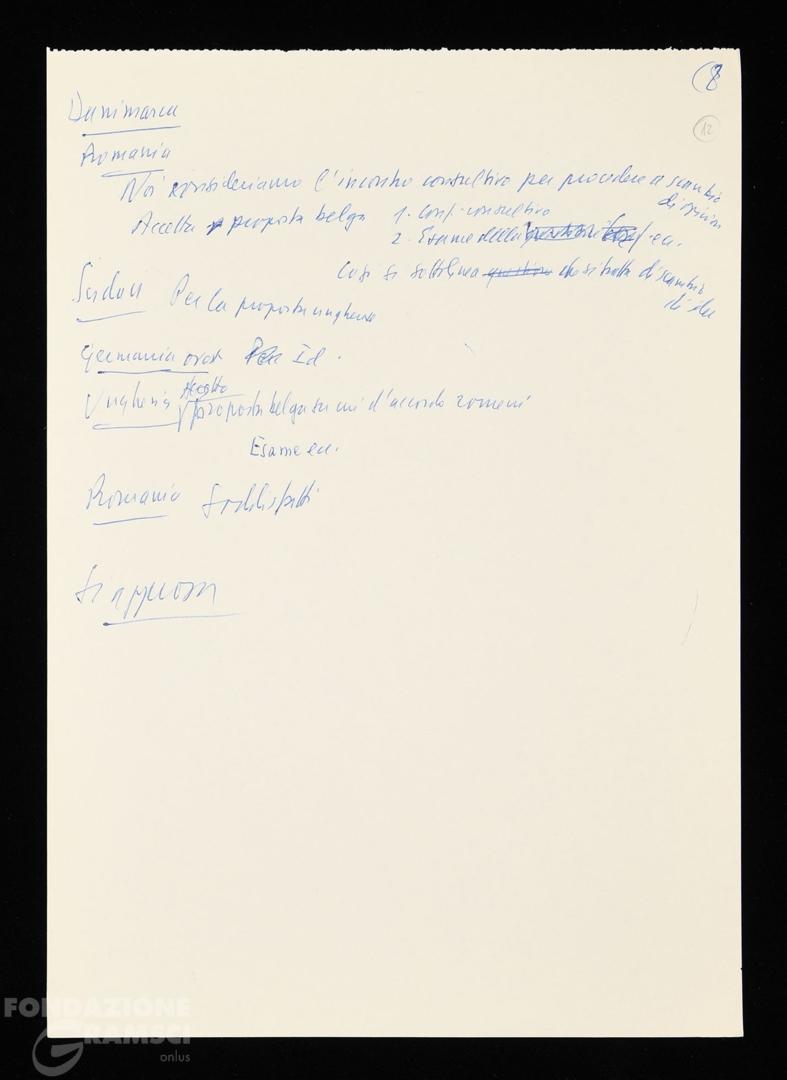 8
12
Danimarca
Romania
Noi consideriamo l'incontro consultivo per procedere a scambio
di opinioni
Accetta proposta belga 1. Conf. consultivo
2. Esame della ec.
Così si sottolinea questione che si tratta di scambio
di idee
Sudan Per la proposta ungherese
Germania ovest Id.
Ungheria Accetta proposta belga su cui d'accordo romeni
Esame ec.
Romania Soddisfatti
Si approva
FONDAZIONE
GRAMSCI
onlus